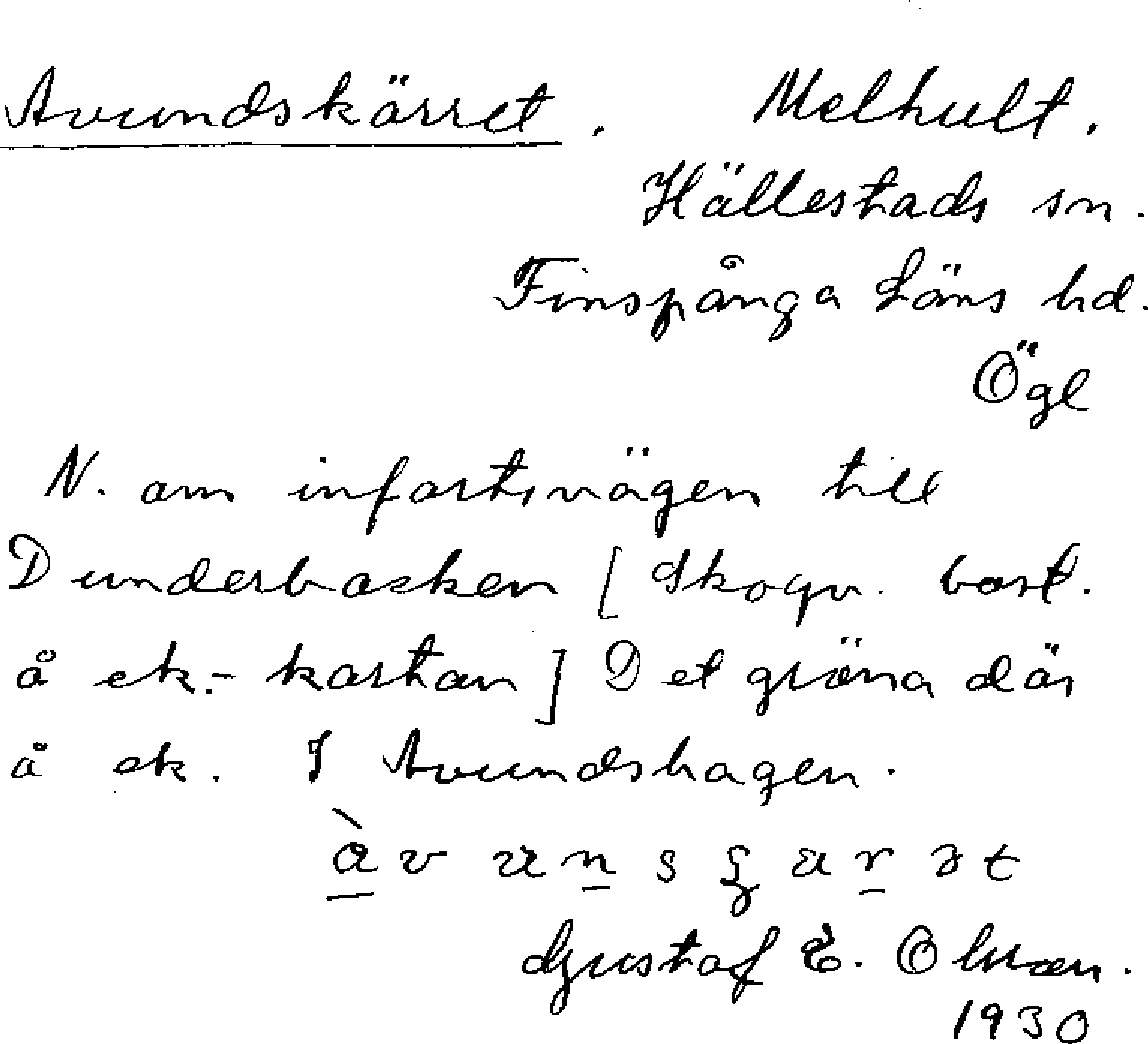 Avundskärret. Melhult.
Hällestads sn.
Finspånga Läns hd.
Ögl
N. om infartsvägen till
Dunderbacken [Skogv. bost.
å ek.-kartan] Det gröna där
å ek. I Avundshagen.
Gustaf E. Olsson.
1930